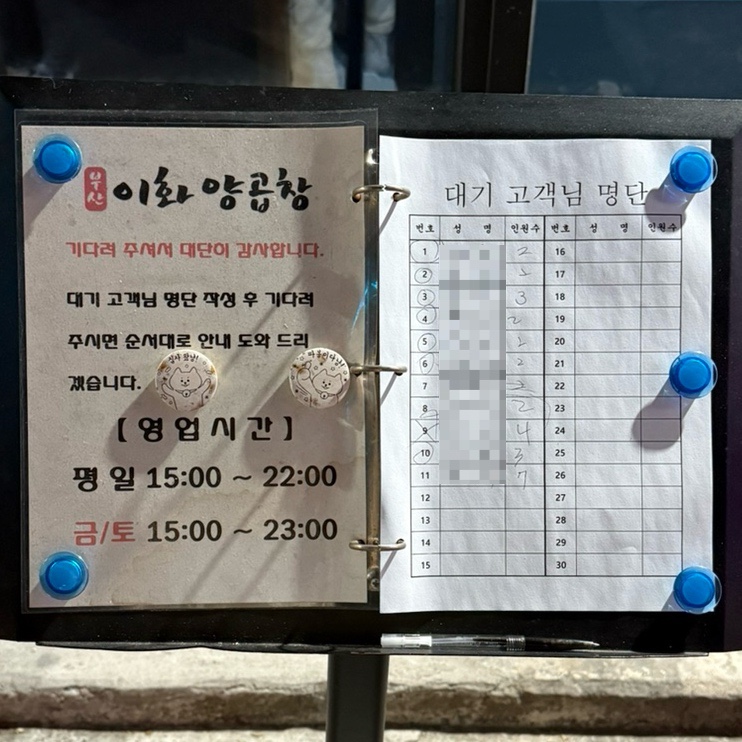 부산 이화 양곱창
기다려 주셔서 대단이 감사합니다.
대기 고객님 명단 작성 후 기다려
주시면 순서대로 안내 도와 드리
겠습니다.
[ 영 업 시 간 ]
평 일 15:00 ~ 22:00
금/토 15:00 ~ 23:00
대기 고객님 명단
번호 성 명 인원수 번호 성 명 인원수
1 2 16
2 2 17
3 3 18
4 2 19
5 2 20
6 2 21
7 22
8 2 23
9 4 24
10 3 25
11 7 26
12 27
13 28
14 29
15 30